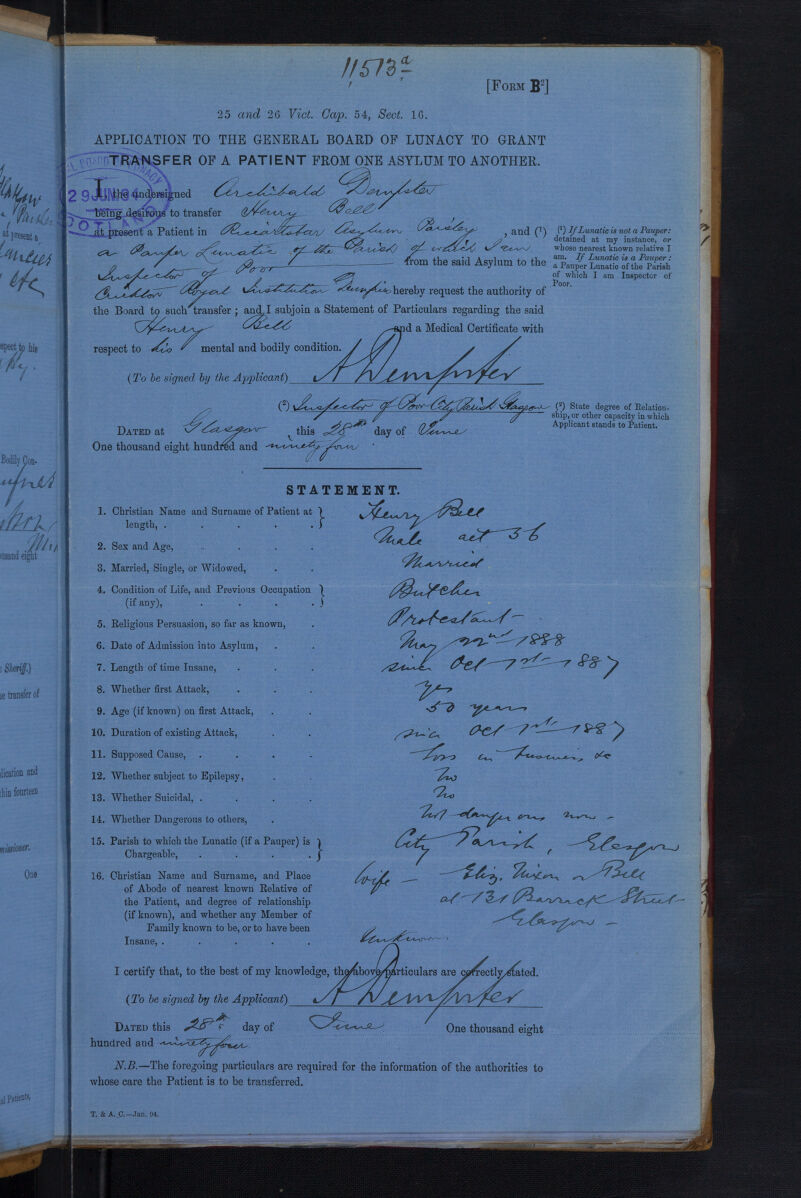 11513a
[FORM B²]
25 and 26 Vict. Cap. 54, Sect. 16.
APPLICATION TO THE GENERAL BOARD OF LUNACY TO GRANT
TRANSFER OF A PATIENT FROM ONE ASYLUM TO ANOTHER.
29 JUN 94
I, the undersigned Archibald Dempster
being desirous to transfer Henry Bell
at present a Patient in Riccartsbar Asylum Paisley, and (¹)
a Pauper Lunatic of the Parish of which I am
Inspector of Poor from the said Asylum to the
Crichton Royal Institution Dumfries hereby request the authority of
the Board to such transfer; and I subjoin a Statement of Particulars regarding the said
Henry Bell and a Medical Certificate with
respect to his mental and bodily condition.
(To be signed by the Applicant) A Dempster
(²) Inspector of Poor City Parish Glasgow
DATED at Glasgow this 28th day of June
One thousand eight hundred and ninety four.
(¹) If Lunatic is not a Pauper:
detained at my instance, or
whose nearest known relative I
am. If Lunatic is a Pauper:
a Pauper Lunatic of the Parish
of which I am Inspector of
Poor.
(²) State degree of Relation-
ship, or other capacity in which
Applicant stands to Patient.
STATEMENT.
1. Christian Name and Surname of Patient at
length, . . . . . Henry Bell
2. Sex and Age, . . . . Male aet 56
3. Married, Single, or Widowed, . . Married
4. Condition of Life, and Previous Occupation
(if any), . . . . Butcher
5. Religious Persuasion, so far as known, . Protestant
6. Date of Admission into Asylum, . . May 22nd 1888
7. Length of time Insane, . . . since Oct 1st 1887
8. Whether first Attack, . . . yes
9. Age (if known) on first Attack, . . 50 years
10. Duration of existing Attack, . . since Oct 1st 1887
11. Supposed Cause, . . . . Loss in business &c
12. Whether subject to Epilepsy, . . No
13. Whether Suicidal, . . . . No
14. Whether Dangerous to others, . Not dangerous now -
15. Parish to which the Lunatic (if a Pauper) is
Chargeable, . . . . City Parish, Glasgow
16. Christian Name and Surname, and Place
of Abode of nearest known Relative of
the Patient, and degree of relationship
(if known), and whether any Member of
Family known to be, or to have been
Insane, . . . . .
Wife - Eliz. Nixon or Bell
at 131 Barrack Street
Glasgow -
Unknown
I certify that, to the best of my knowledge, the above particulars are correctly stated.
(To be signed by the Applicant) A Dempster
DATED this 28th day of June One thousand eight
hundred and ninety four
N.B.—The foregoing particulars are required for the information of the authorities to
whose care the Patient is to be transferred.
T. & A. C.—Jan. 94.